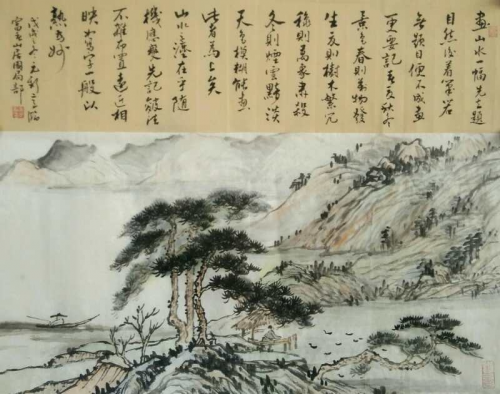 畫山水一幅先立題
目然後着筆若
無題目便不成畫
更要記春夏秋冬
景色春則萬物發
生夏則樹木繁冗
秋則萬象肅殺
冬則煙雲黯淡
天色模糊能畫
此者為上矣
山水之法在乎隨
機應變先記皴法
不雜布置遠近相
映如寫字一般以
熟為妙
戊戌年
富春山居圖局部